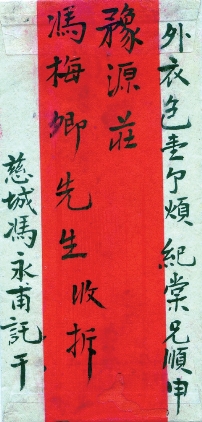 外衣包壹个煩 紀棠兄順申
豫源莊
馮梅卿先生收拆
慈城馮永甫託干